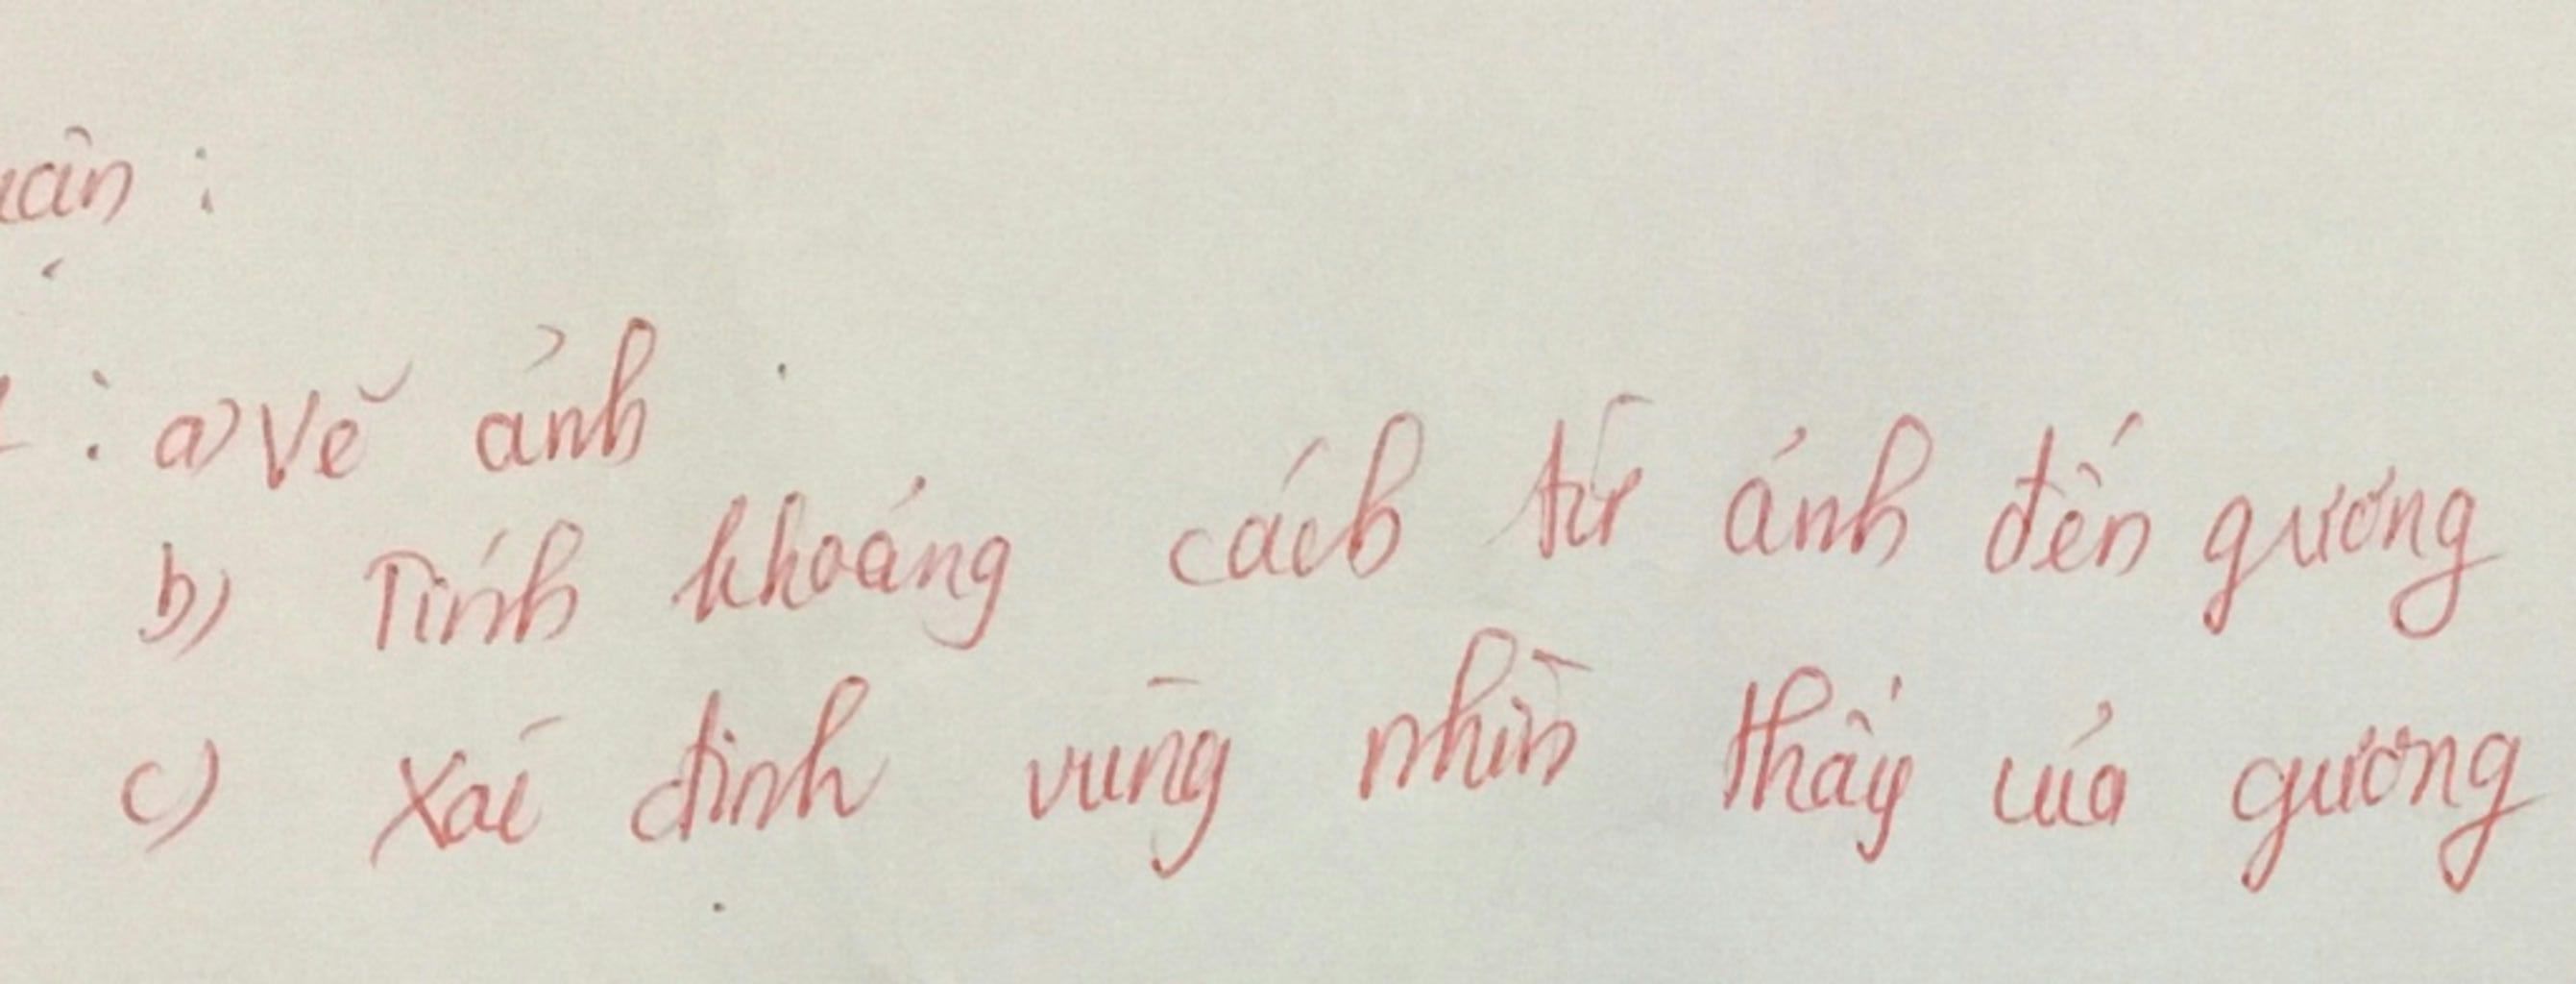 : a) Vẽ ảnh
b) Tính khoảng cách từ ảnh đến gương
c) Xác định vùng nhìn thấy của gương